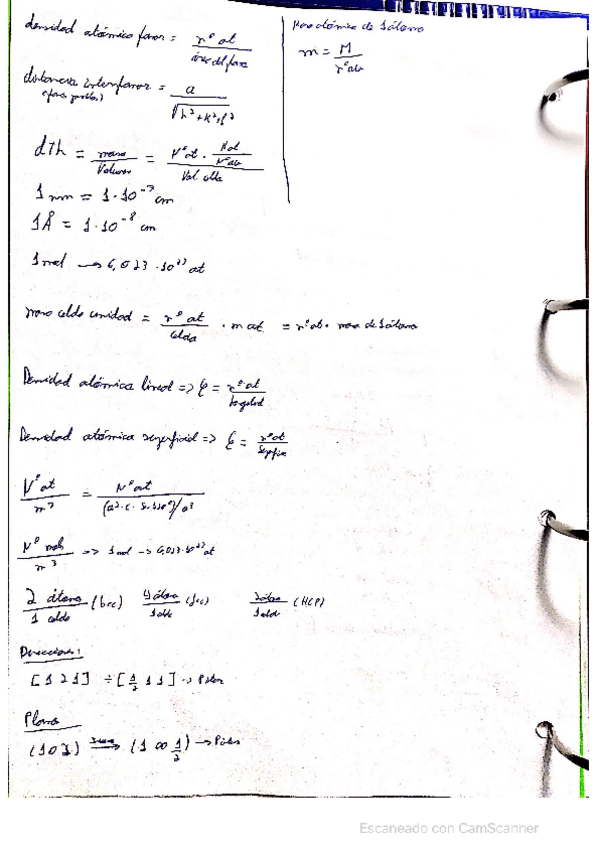 densidad atómica planar = nº at / área del plano
distancia interplanar = a / √h²+k²+l²
dth = masa / Volumen = Nº at · / Vol. celda
1 nm = 1·10⁻⁷ cm
1Å = 1·10⁻⁸ cm
1 mol → 6,023·10²³ at
masa celda unidad = nº at / celda · m at. = nº at · masa de 1 átomo
Densidad atómica lineal => ρ = nº at / longitud
Densidad atómica superficial => ρ = nº at / Superficie
Nº at / m³ = Nº at
Nº mols / m³ => 1 mol → 6,023·10²³ at
2 átomos / 1 celda (bcc) 4 átomos / 1 celda (fcc) (HCP)
Direcciones:
[1 2 1] ÷ [1/2 1 1] →
Planos
→ (1 ∞ 1/2) →
Masa atómica de 1 átomo
m = M
Escaneado con CamScanner